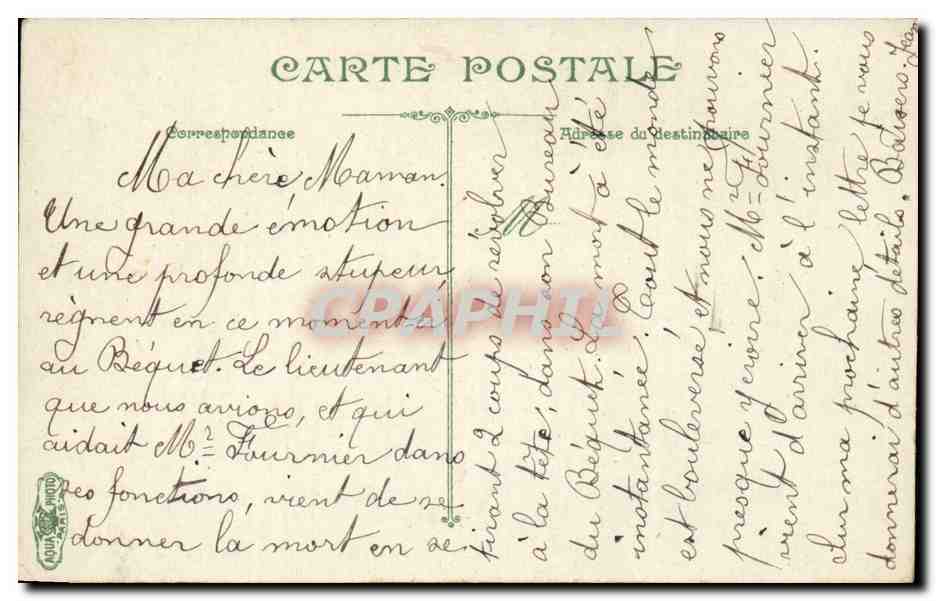 CARTE POSTALE
Correspondance
Adresse du destinataire
Ma chère Maman.
Une grande émotion
et une profonde stupeur
règnent en ce moment-ci
au Béquet. Le lieutenant
que nous avions, et qui
aidait Mr Fournier dans
ses fonctions, vient de se
donner la mort en se
tirant 2 coups de révolver
à la tête, dans son Bureau
du Béquet. La mort à été
instantanée. Tout le monde
est bouleversé et nous ne pouvons
presque y croire. Mr Fournier
vient d'arriver à l'instant.
Sur ma prochaine lettre je vous
donnerai d'autres détails. Baisers. Jean
CPAPHIL
AQUA PHOTO
PARIS